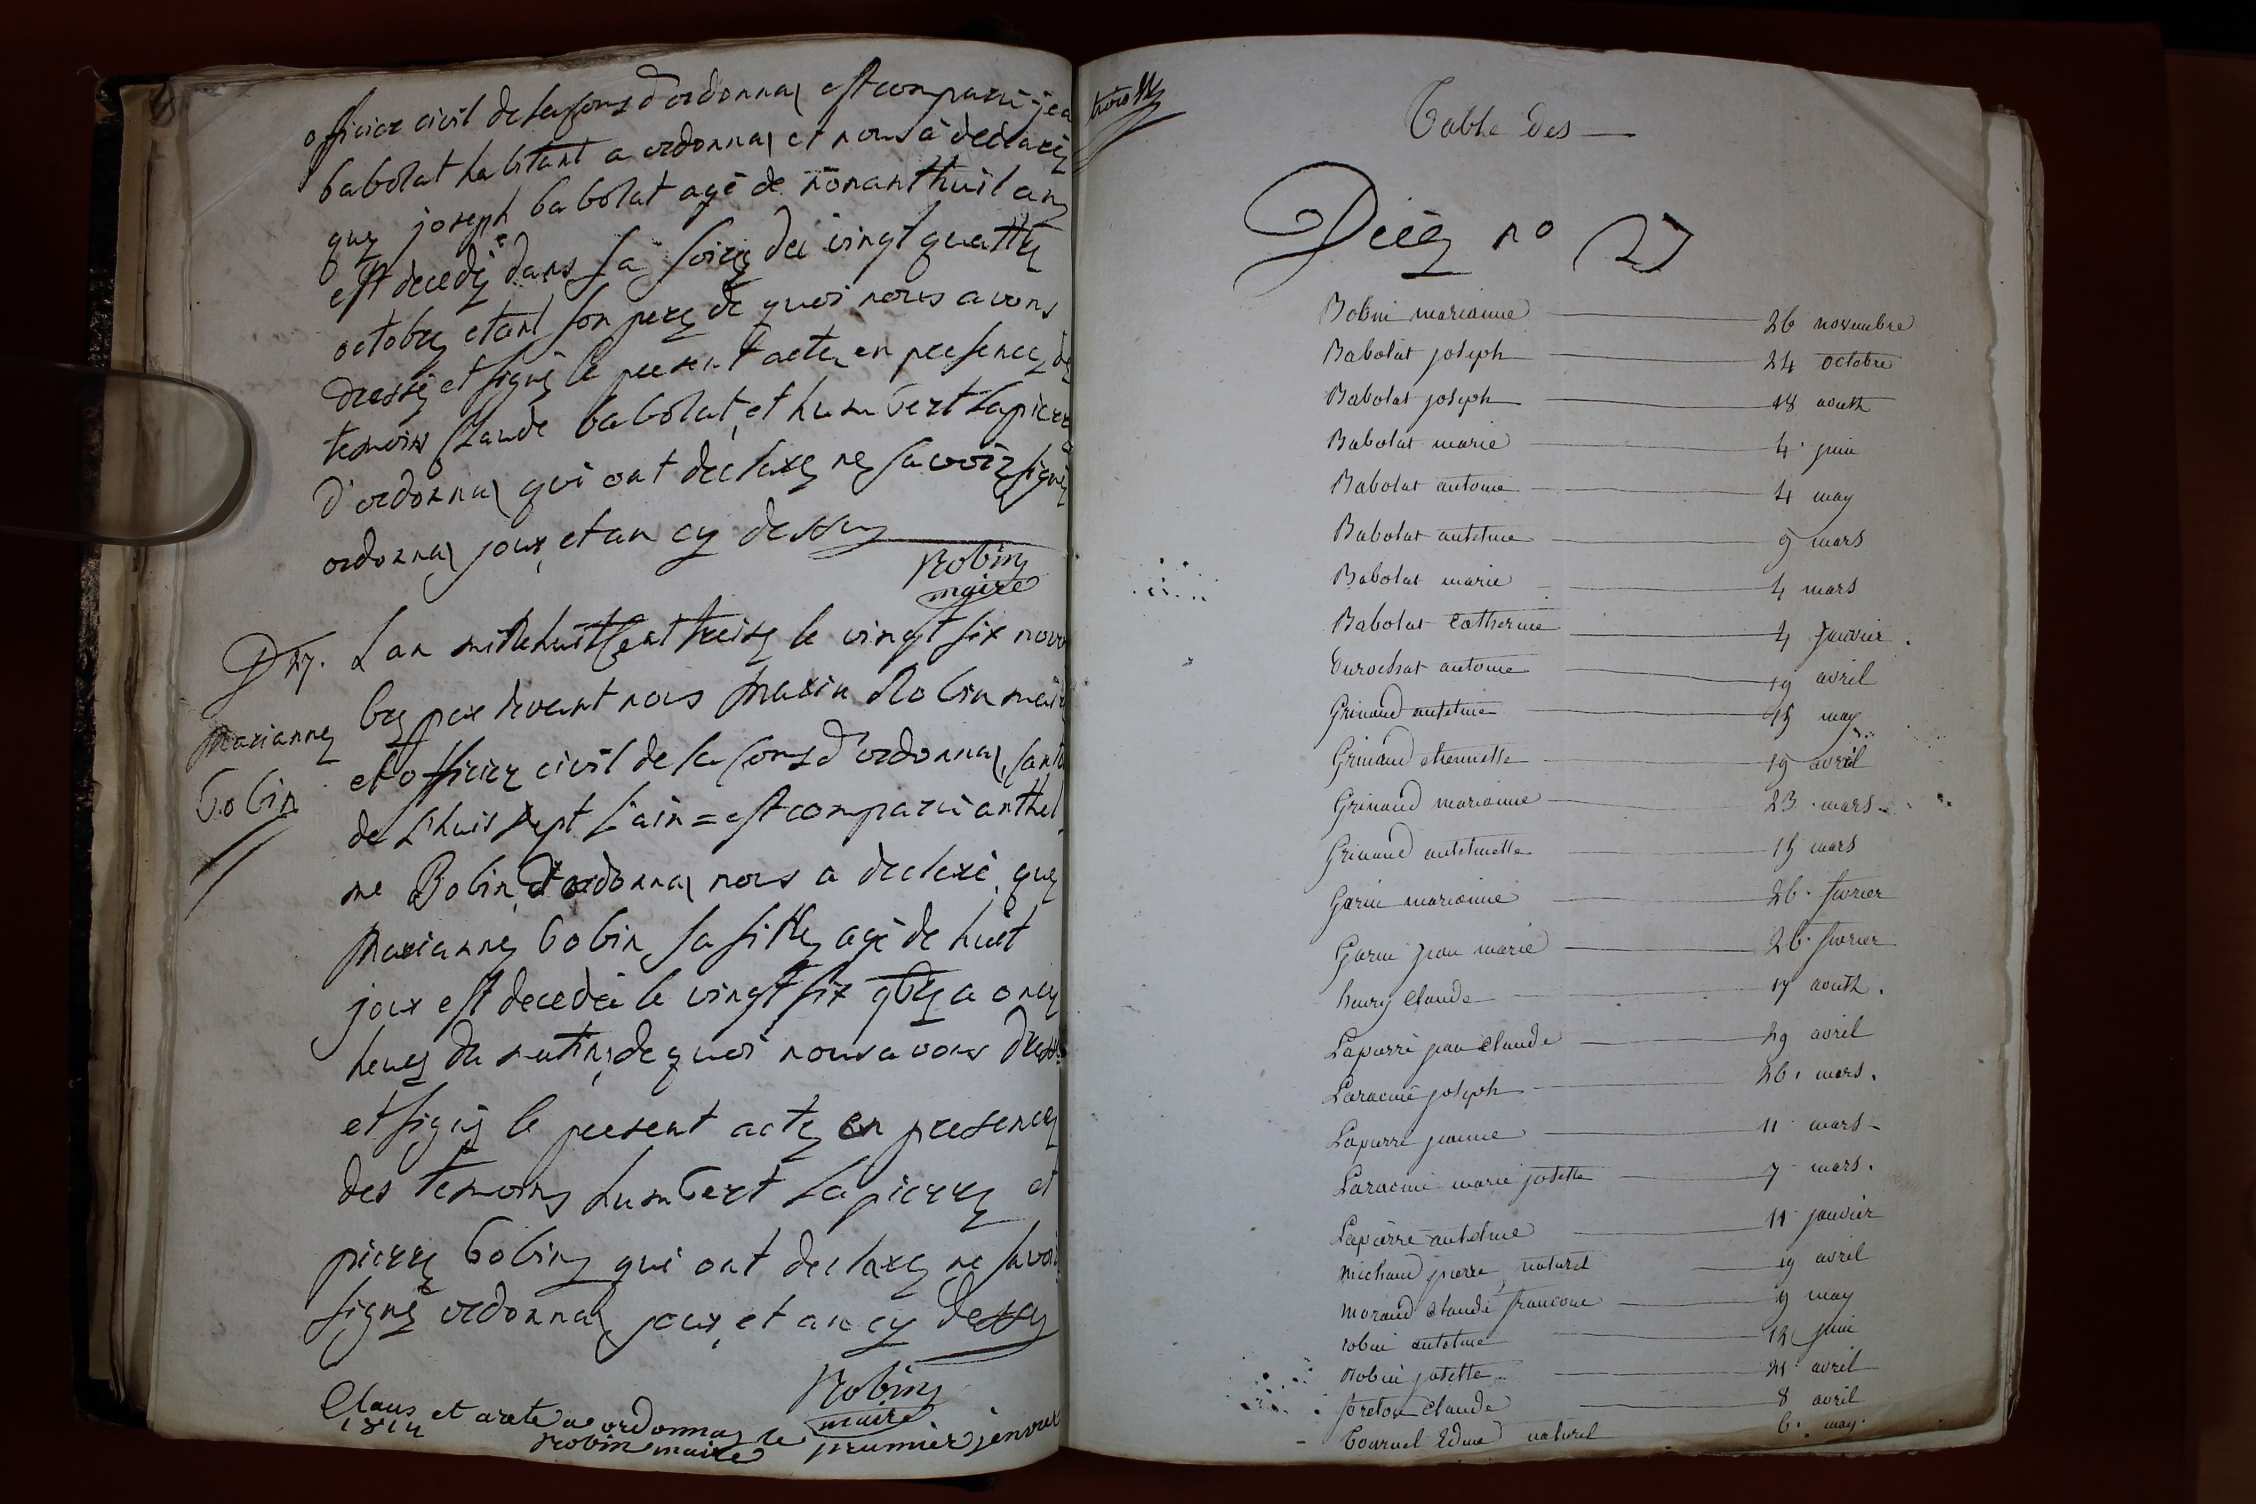 officier civil de la Com d'ordonnaz est comparu jea
babolat habitant a ordonnaz et nous à declaré
que joseph babolat agé de nonant huit ans
est decedé dans la soire du vingt quattre
octobre etant son pere de quoi nous avons
dressé et signé le present acte en presence de
temoins Claude babolat, et humbert lapierre
d'ordonnaz qui ont declaré ne savoir signé
ordonnaz jour, et an cy dessus
Robin
maire
D 27.
marianne
bobin
Lan mille huit Cent treize le vingt six novem
bre par devant nous marin Robin maire
et officier civil de la Com d'ordonnaz, Canton
de Lhuis dept L'ain = est comparu anthel
me Bobin d'ordonnaz nous a declaré que
marianne bobin sa fille agé de huit
jour est decedée le vingt six 9bre a onze
heures du matin, de quoi nous avons dressé
et signé le present acte en presence
des temoins humbert lapierre et
pierre bobin qui ont declaré ne savoir
signé ordonnaz jour, et an cy dessus
Robin
maire
Claus et areté a ordonnaz le premier jenvier
1814 Robin maire
Table des
Décés no 27
Bobin marianne 26 novembre
Babolat joseph 24 octobre
Babolat joseph 18 aouth
Babolat marie 4 juin
Babolat antoine 4 may
Babolat antelme 9 mars
Babolat marie 4 mars
Babolat Catherine 4 Janvier.
Durochat antoine 19 avril
Grinand antelme 15 may
Grinand etiennette 19 avril
Grinand marianne 23 mars
Grinand antelmette 15 mars
Garin marianne 26 fevrier
Garin jean marie 26 fevrier
henry Claude 17 aouth.
Lapierre jean Claude 29 avril
Laracine joseph 26. mars.
Lapierre jeanne 11 mars
Laracine marie josette 7 mars.
Lapierre antelme 11 janvier
michaud pierre, naturel 19 avril
morand Claude francoise 9 may
robin antelme 12 juin
Robin josette 21 avril
foreton Claude 8 avril
Tournel Edme naturel 6. may.